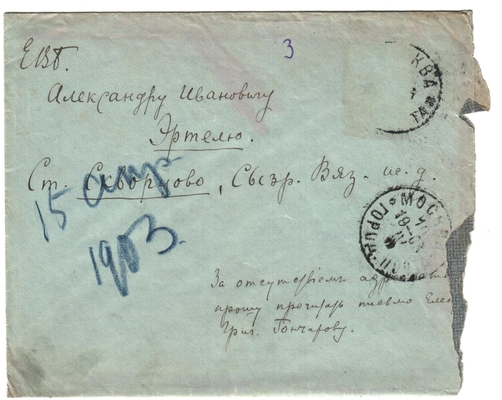 3
ЕВБ.
Александру Ивановичу
Эртелю.
Ст. Скворцово, Сызр. Вяз. же. д.
15 апр.
1903.
КВА
МОСКВ
За отсутствием адр
прошу прочитать письмо Еле
Григ. Гончарову.